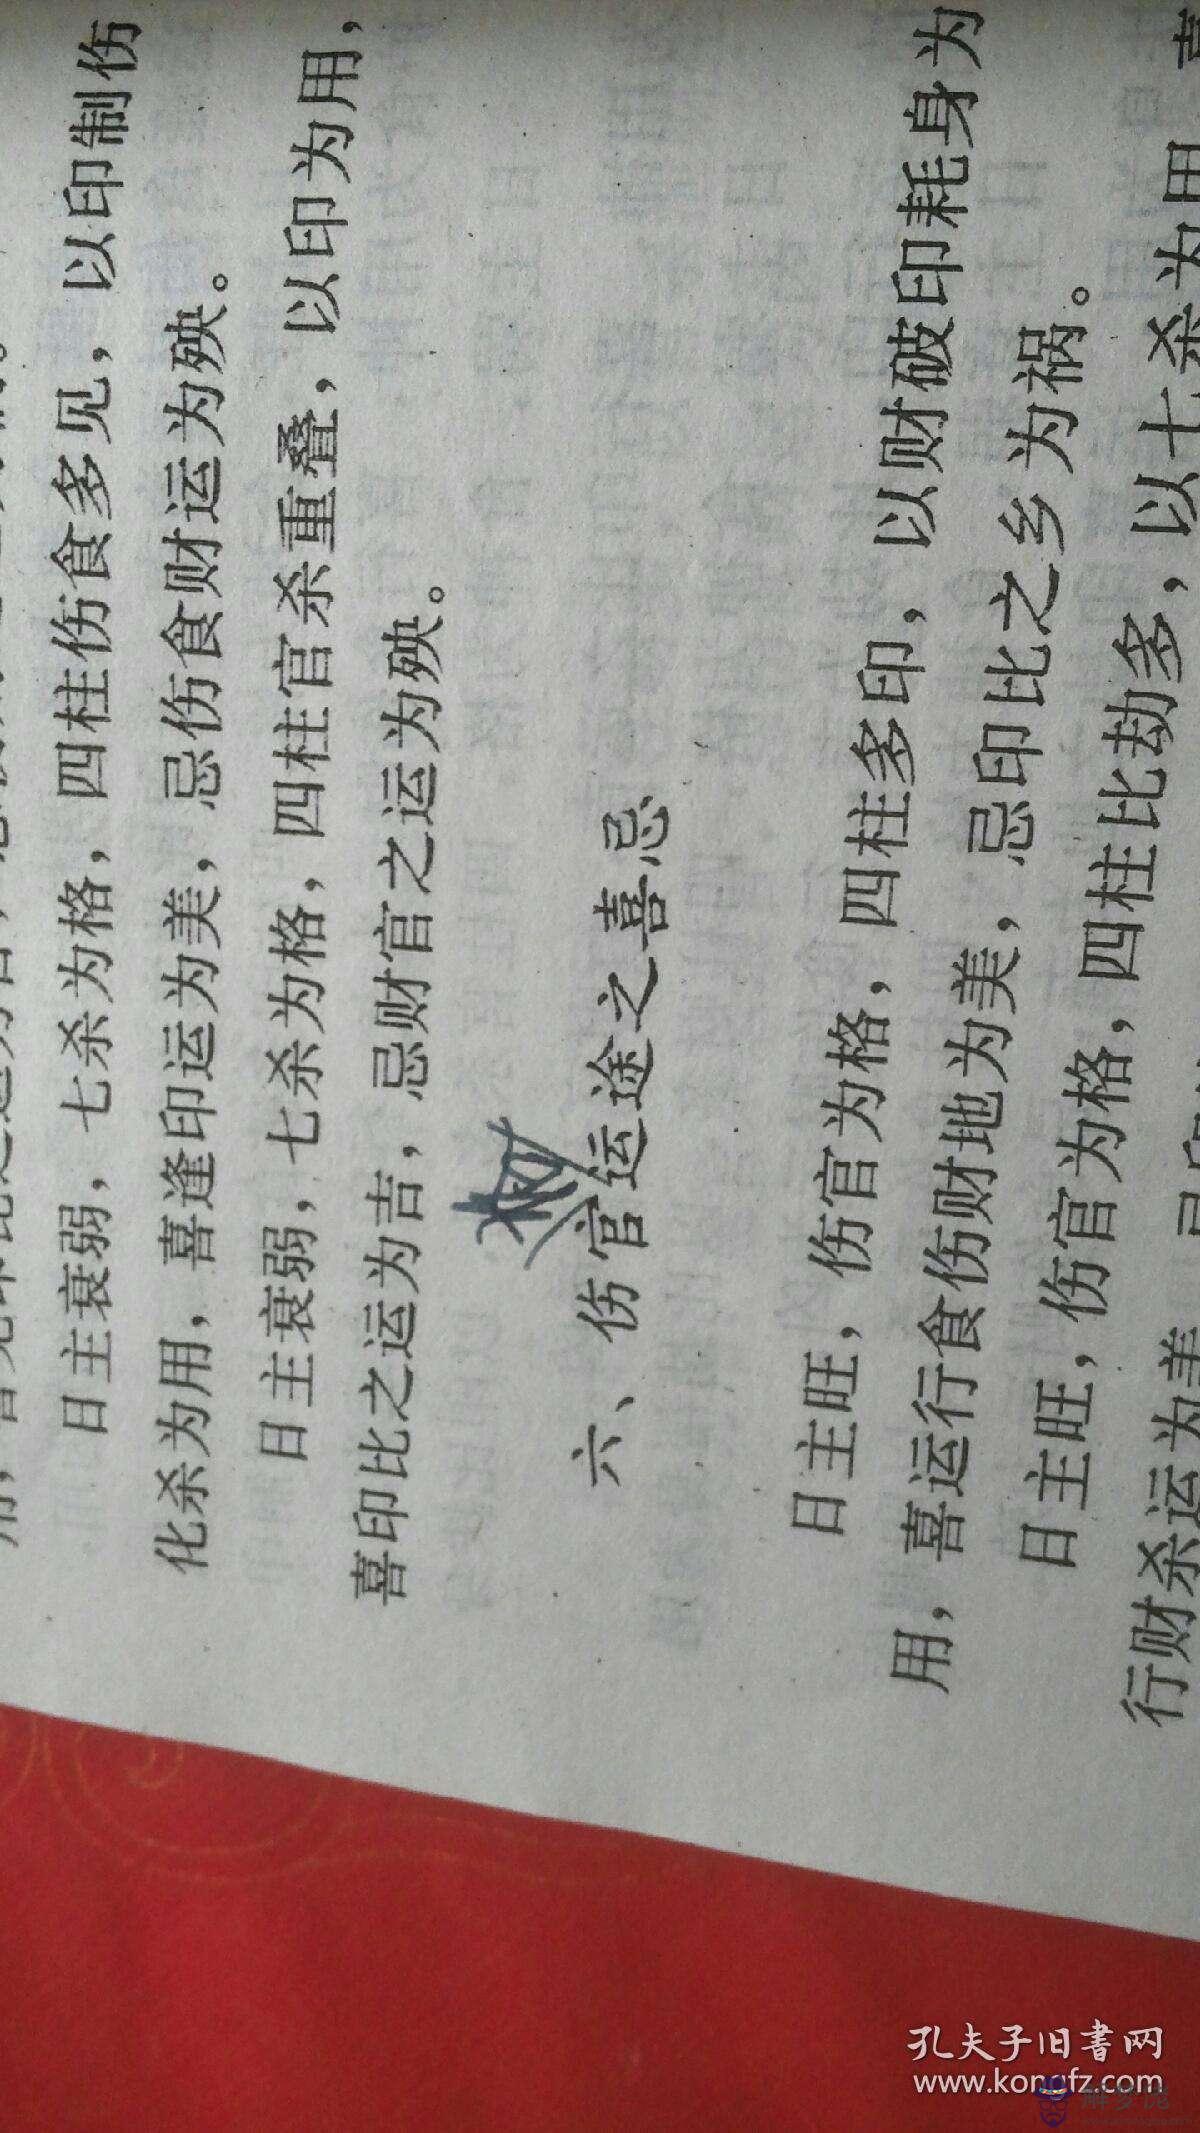 日主衰弱，七杀为格，四柱伤食多见，以印制伤
化杀为用，喜逢印运为美，忌伤食财运为殃。
日主衰弱，七杀为格，四柱官杀重叠，以印为用，
喜印比之运为吉，忌财官之运为殃。
六、伤官运途之喜忌
日主旺，伤官为格，四柱多印，以财破印耗身为
用，喜运行食伤财地为美，忌印比之乡为祸。
日主旺，伤官为格，四柱比劫多，以七杀为用，喜
行财杀运为美，忌印
孔夫子旧書网
www.kongfz.com
解梦佬